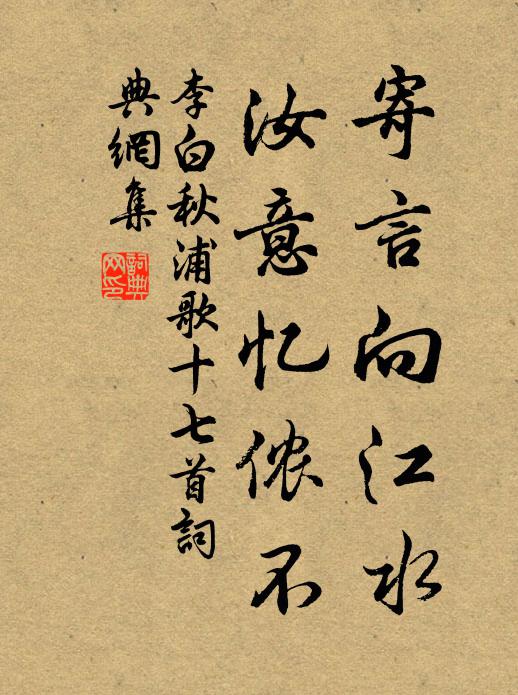 寄言向江水
汝意忆侬不
李白秋浦歌十七首詞
典網集
詞典
网印